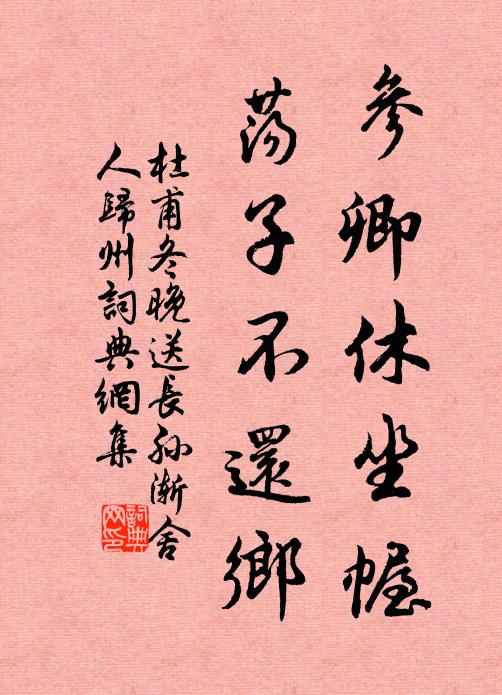 參卿休坐幄
蕩子不還鄉
杜甫冬晚送長孫漸舍
人歸州詞典網集
詞典網印